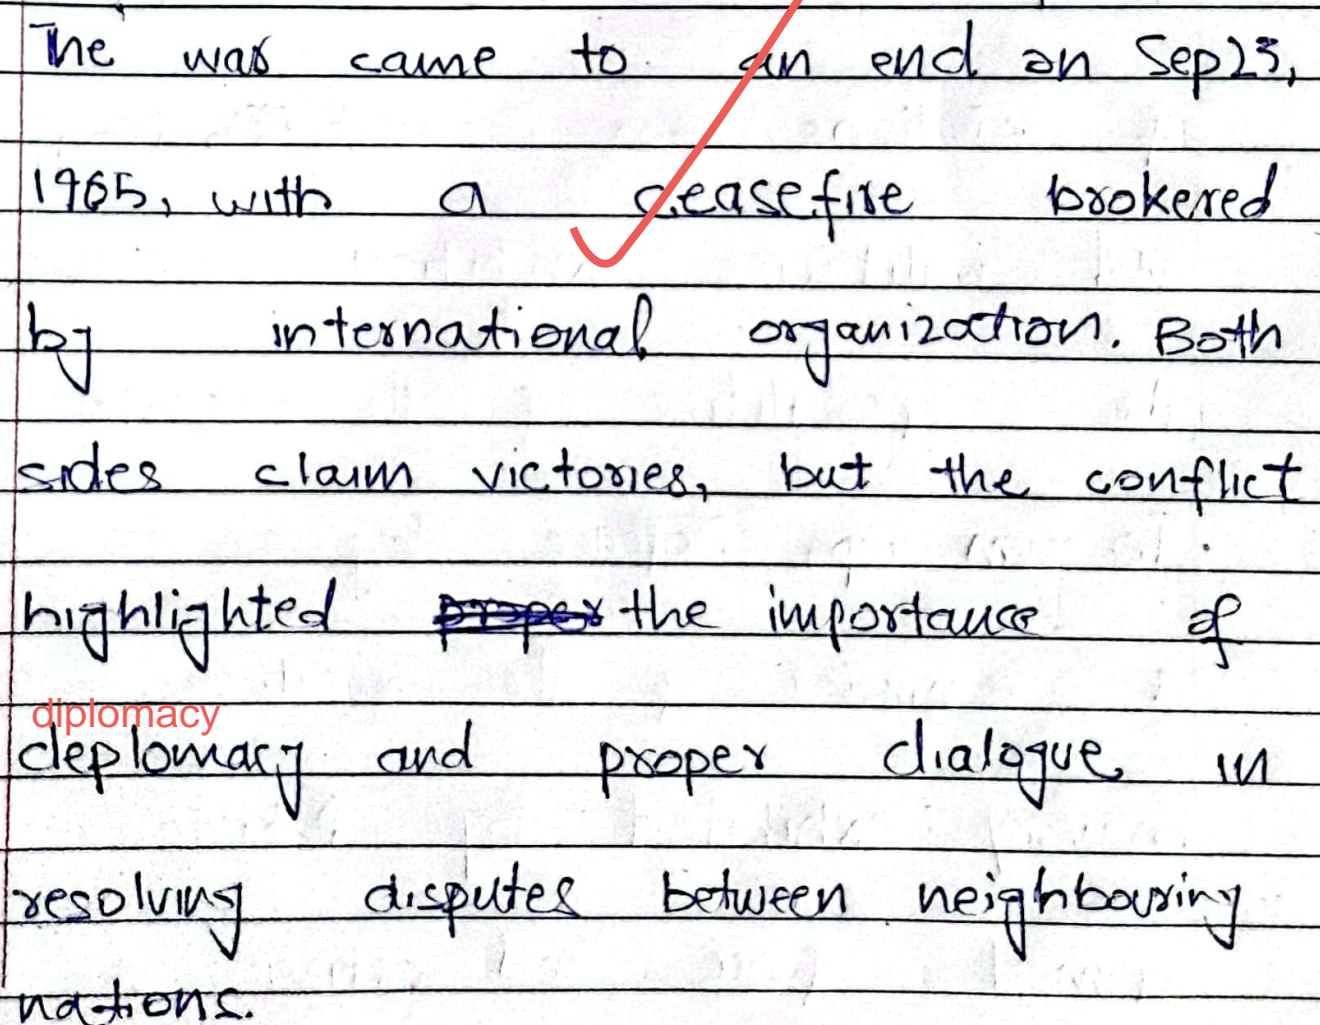 The war came to an end on Sep 23,
1965, with a ceasefire brokered
by international organization. Both
sides claim victories, but the conflict
highlighted proper the importance of
diplomacy
deplomacy and proper dialogue in
resolving disputes between neighbouring
nations.